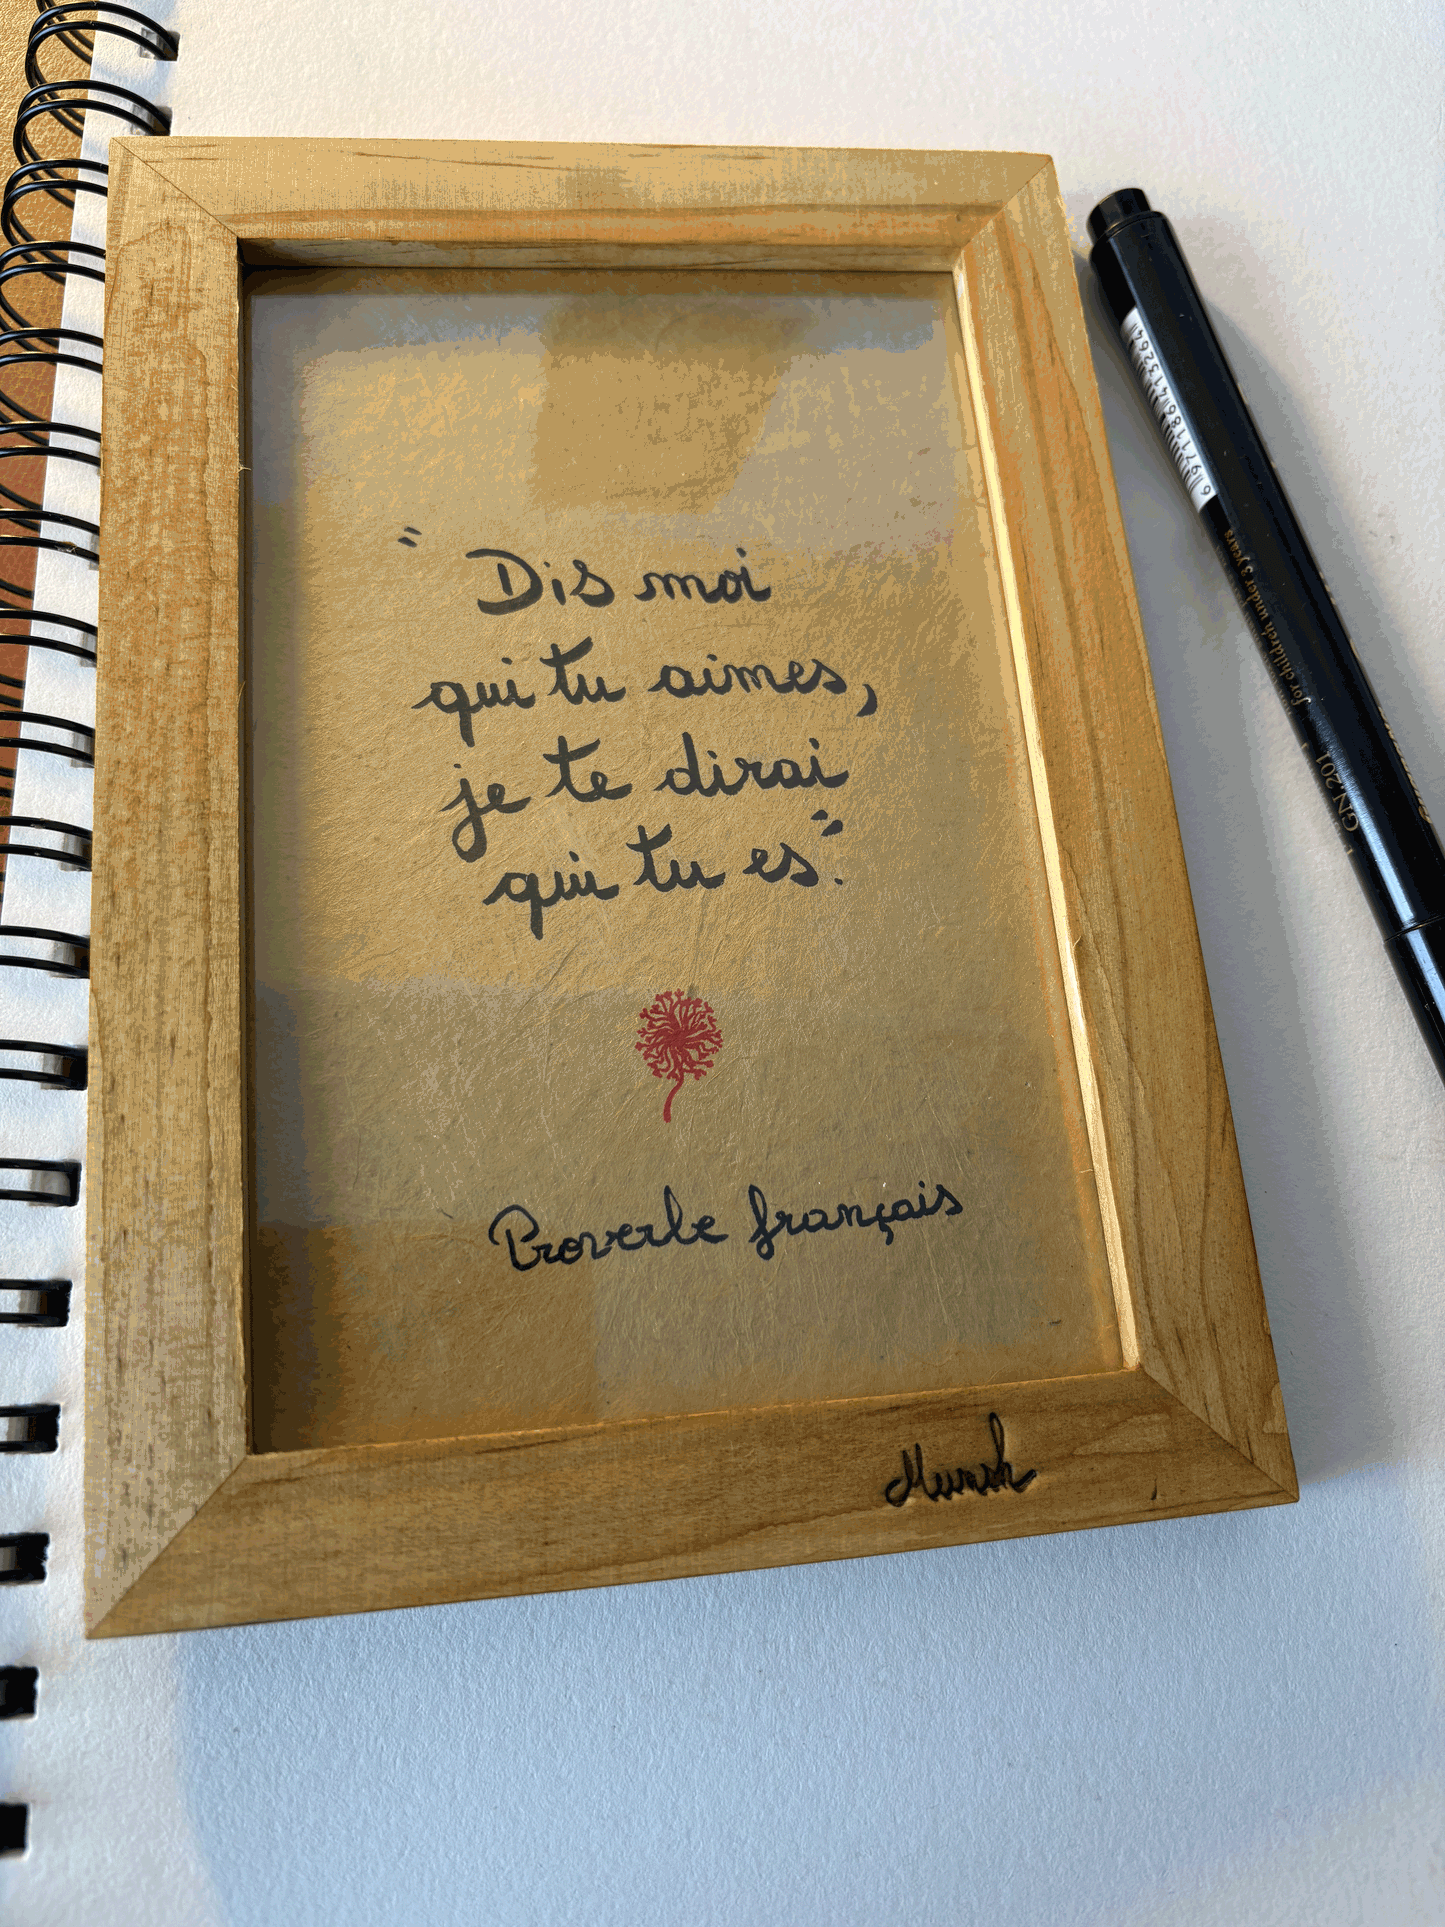 "Dis moi
qui tu aimes,
je te dirai
qui tu es".
Proverbe français
6 971186 413264
for children under 3 years
GN 201